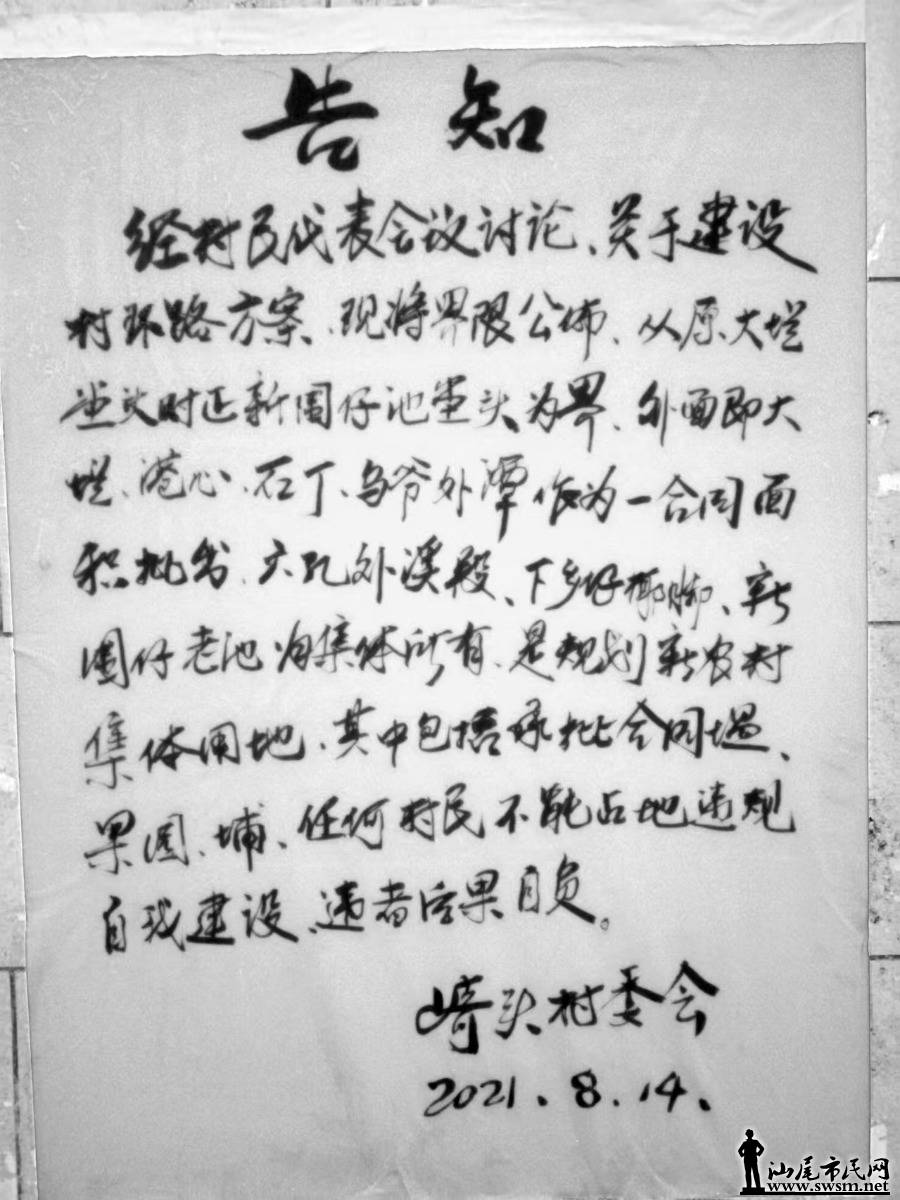 告知
经村民代表会议讨论、关于建设
村环路方案、现将界限公佈、从原大埕
头对正新围仔池头为界、外面即大
埕、港心、石丁、乌爷外潭作为一合同面
积批出、六孔外溪段、下乡仔脚、新
围仔老池为集体所有、是规划新农村
集体用地、其中包括承批合同塭、
果园、埔、任何村民不能占地违规
自我建设、违者后果自负。
崎头村委会
2021.8.14.
汕尾市民网
www.swsm.net